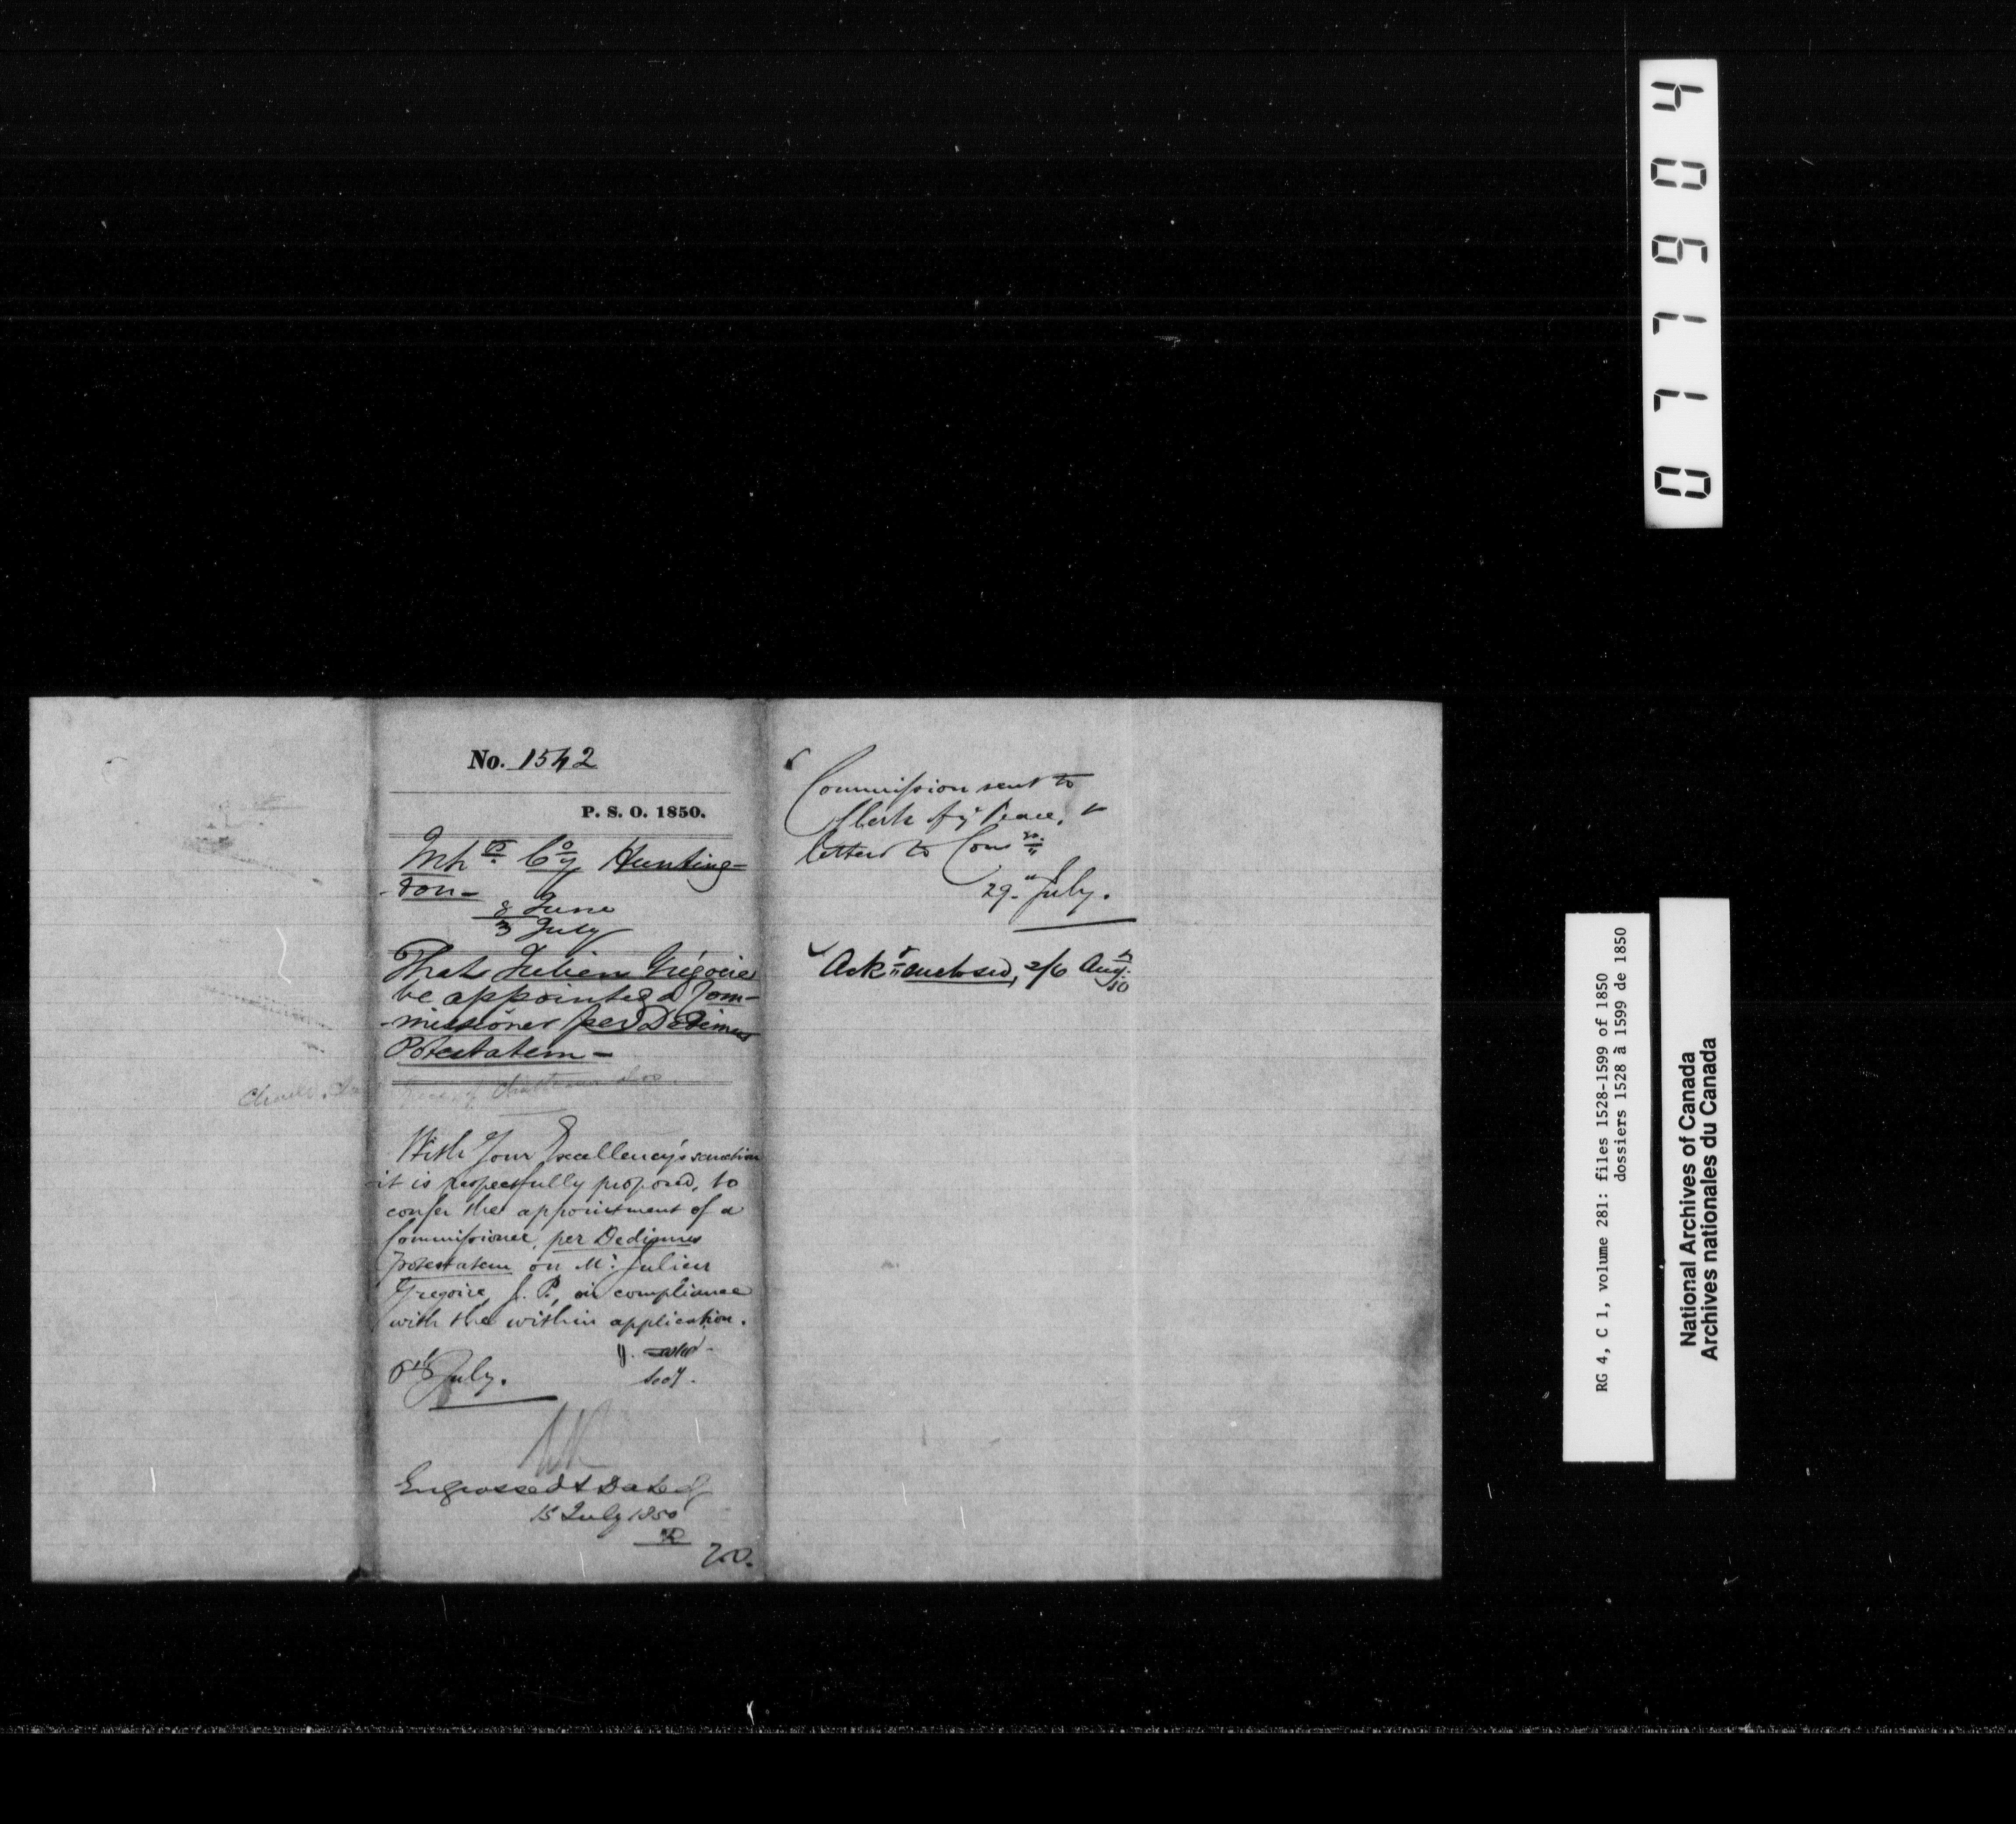 No. 1542
P. S. O. 1850.
Co'y Hunting-
-don-
8 June
3 July
That Julien Grégoire
be appointed a Com-
-missioner per Dedimus
Potestatem-
With Your Excellency's sanction
it is respectfully proposed, to
confer the appointment of a
Commissioner, per Dedimus
potestatem on Mr. Julien
Gregoire, J. P., in compliance
with the within application.
July.
Secy.
Engrossed & Dated
15 July 1850
Commission sent to
Clerk of ye Peace, &
letter to Com
29th July.
Ackt enclosed, 2/6 Aug.
50
077904
RG 4, C 1, volume 281: files 1528-1599 of 1850
dossiers 1528 à 1599 de 1850
National Archives of Canada
Archives nationales du Canada